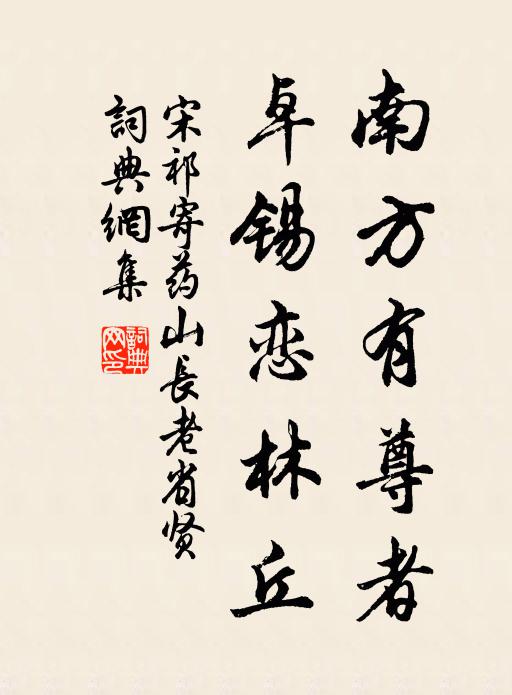 南方有尊者
卓锡恋林丘
宋祁寄药山長老省贤
詞典網集
詞典網印